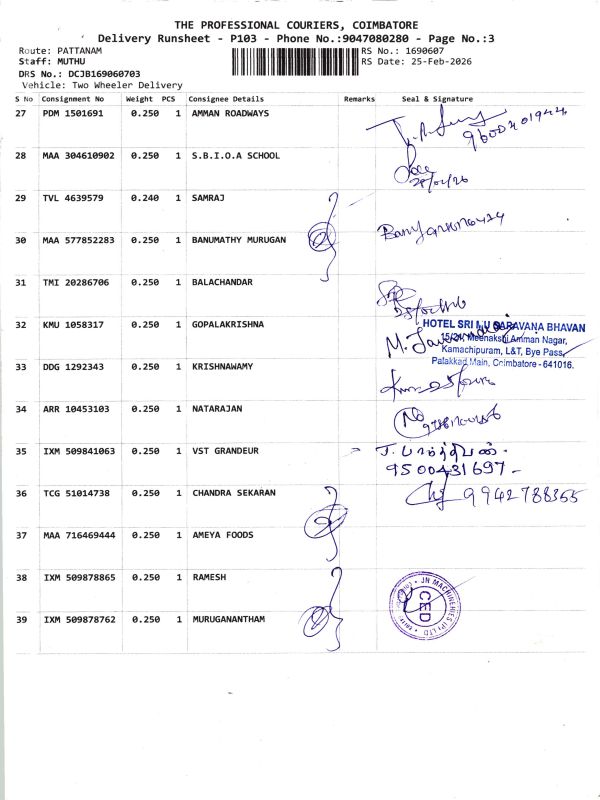 THE PROFESSIONAL COURIERS, COIMBATORE
Delivery Runsheet - P103 - Phone No.:9047080280 - Page No.:3
Route: PATTANAM RS No.: 1690607
Staff: MUTHU RS Date: 25-Feb-2026
DRS No.: DCJB169060703
Vehicle: Two Wheeler Delivery
S No Consignment No Weight PCS Consignee Details Remarks Seal & Signature
27 PDM 1501691 0.250 1 AMMAN ROADWAYS
28 MAA 304610902 0.250 1 S.B.I.O.A SCHOOL
29 TVL 4639579 0.240 1 SAMRAJ
30 MAA 577852283 0.250 1 BANUMATHY MURUGAN
31 TMI 20286706 0.250 1 BALACHANDAR
32 KMU 1058317 0.250 1 GOPALAKRISHNA
HOTEL SRI SARAVANA BHAVAN
Meenakshi Amman Nagar,
Kamachipuram, L&T, Bye Pass,
Palakkad Main, Coimbatore - 641016.
33 DDG 1292343 0.250 1 KRISHNAWAMY
34 ARR 10453103 0.250 1 NATARAJAN
35 IXM 509841063 0.250 1 VST GRANDEUR
9500431697
36 TCG 51014738 0.250 1 CHANDRA SEKARAN 9942788355
37 MAA 716469444 0.250 1 AMEYA FOODS
38 IXM 509878865 0.250 1 RAMESH
JN MACHINERIES (P) LTD
CED
39 IXM 509878762 0.250 1 MURUGANANTHAM